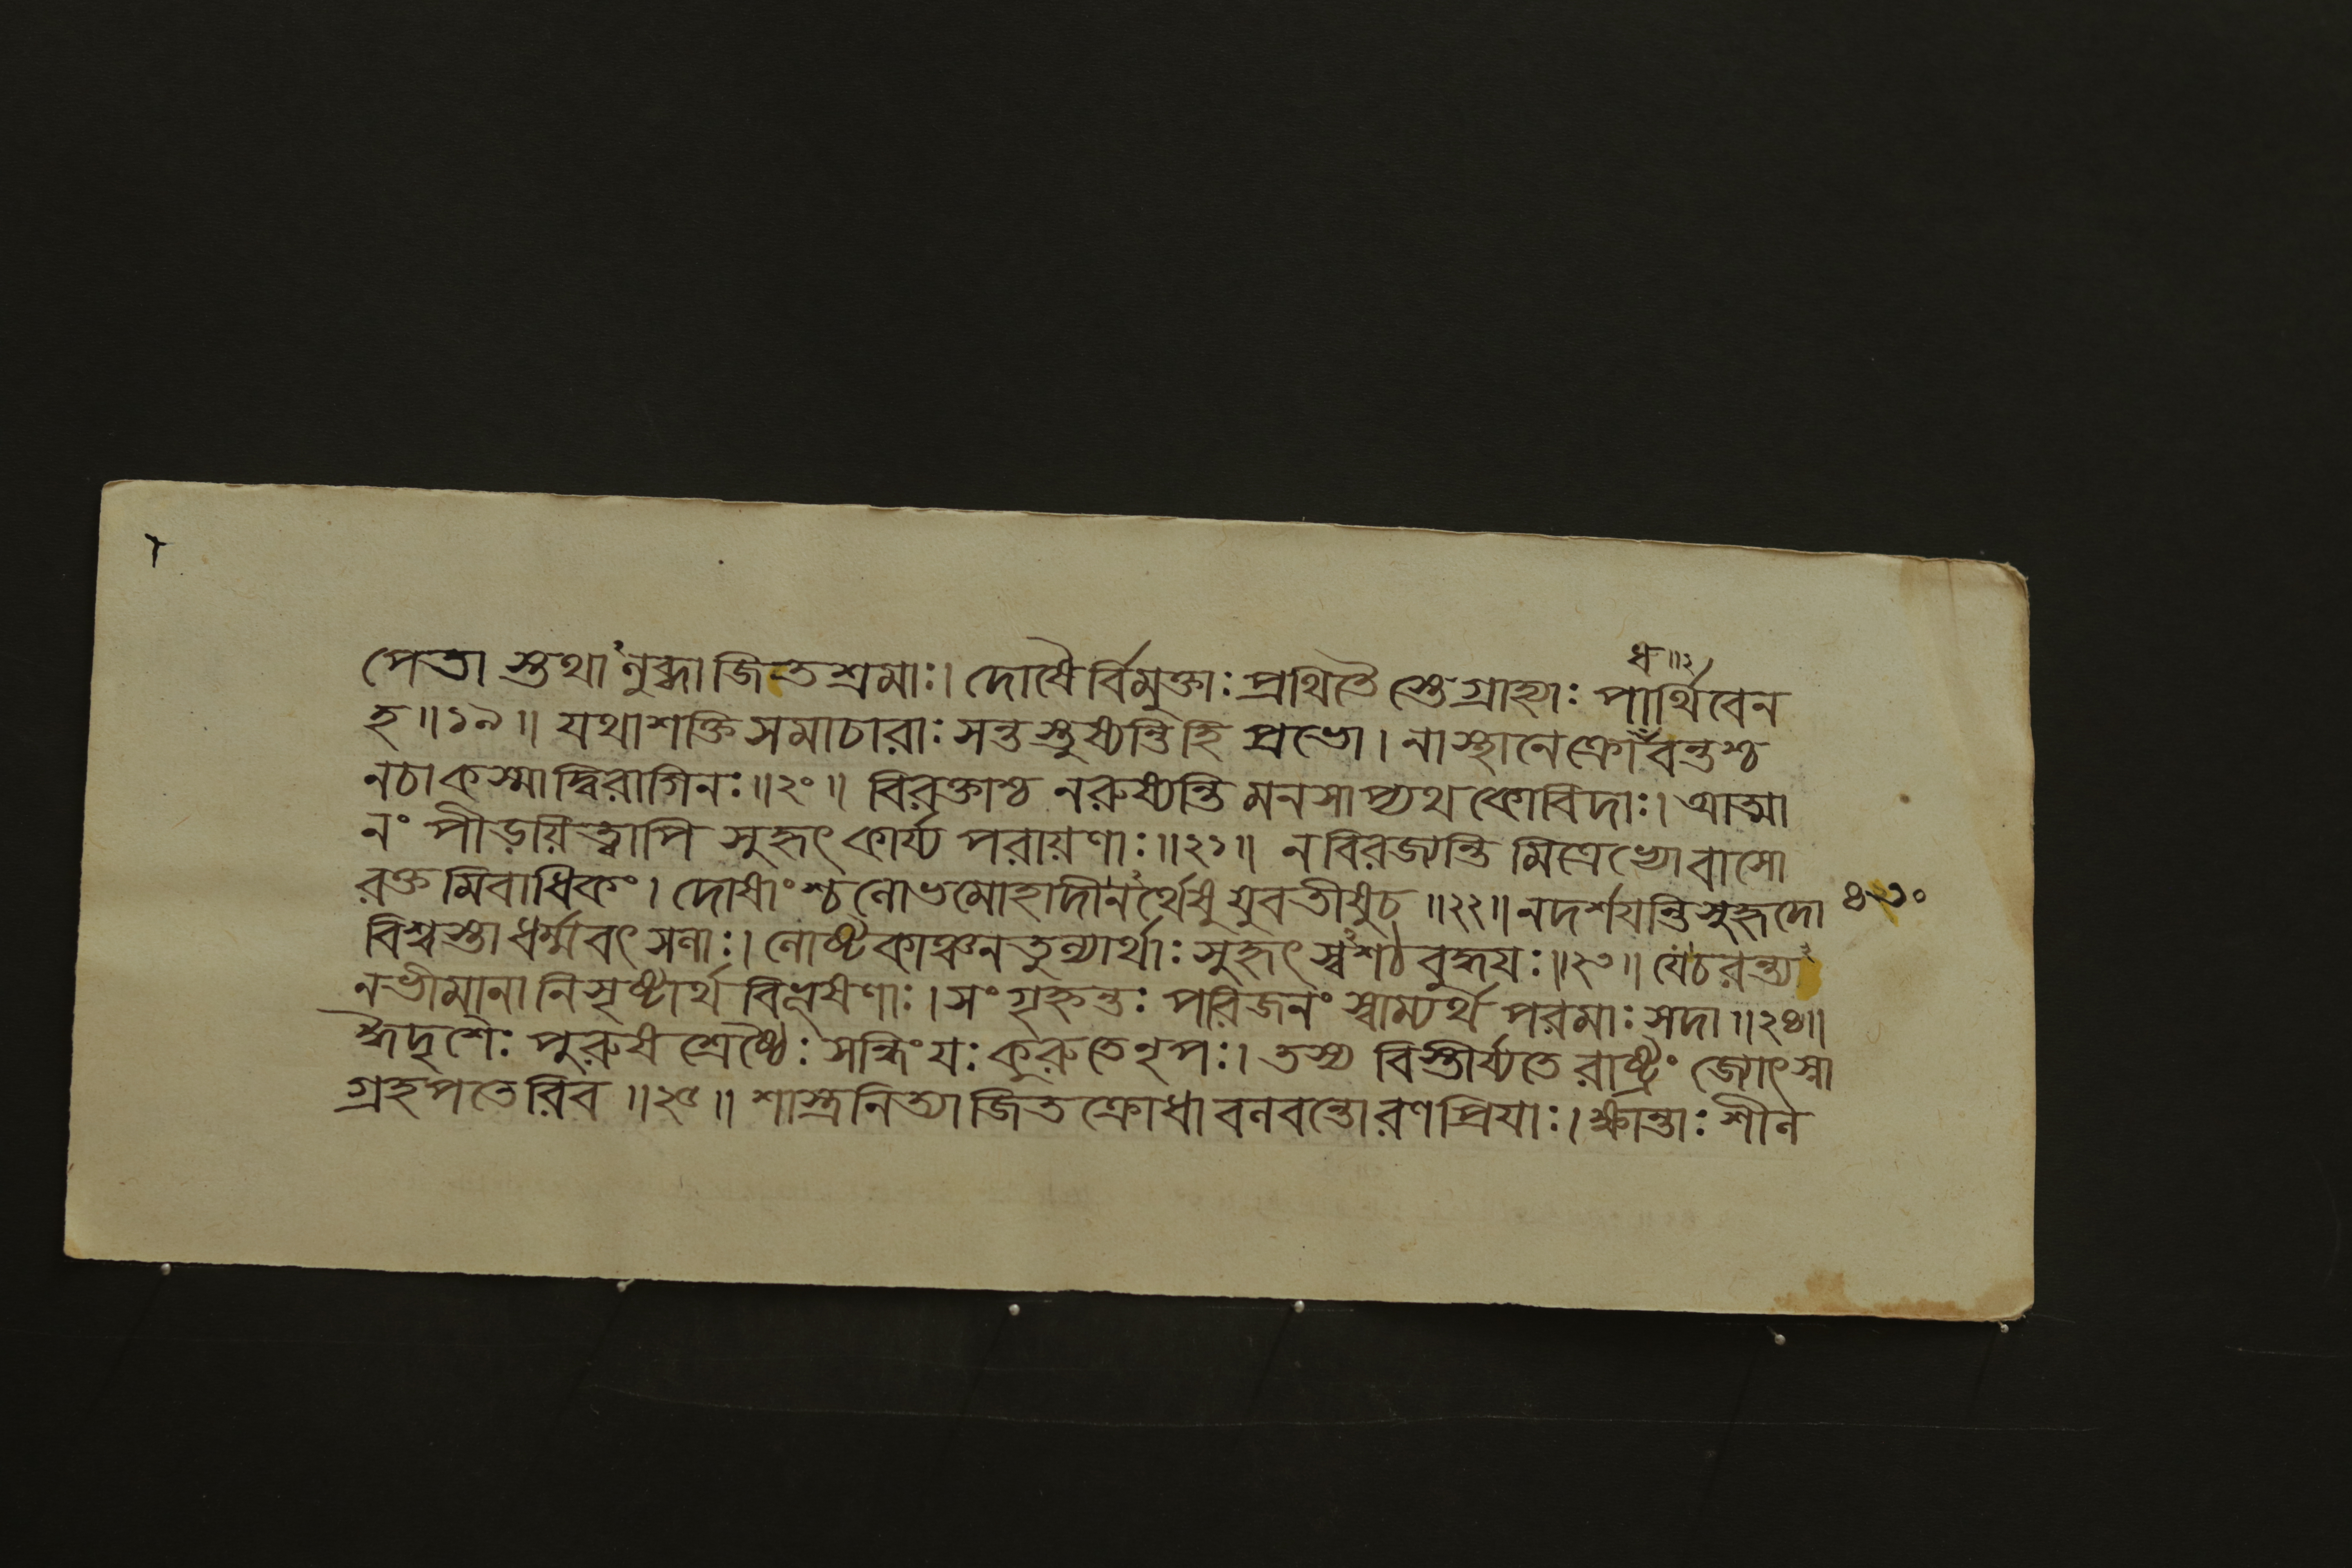 ধ ॥২
পেতা স্তথা নুব্ধা জিতশ্রমাঃ। দোষৈর্বিমুক্তাঃ প্রথিতৈ স্তেগ্রাহ্যাঃ পার্থিবেন
হ॥১৯॥ যথাশক্তিসমাচারাঃ সন্তস্তুষ্যন্তিহি প্রভো। নাস্থানেক্রোবন্তশ্চ
নচাকস্মাদ্বিরাগিনঃ॥২০॥ বিরক্তাশ্চ নরুষ্যন্তি মনসাপ্যথ কোবিদাঃ। আত্মা
নং পীড়য়িত্বাপি সুহৃৎ কার্য্য পরায়ণাঃ॥২১॥ নবিরজ্যন্তি মিত্রেভ্যোবাসো
রক্তমিবাধিকং। দোষাংশ্চলোভমোহাদীনর্থেষুযুবতীষুচ॥২২॥ নদর্শয়ন্তিসুহৃদো
৪৩০
বিশ্বস্তা ধর্ম্মবৎসলাঃ। লোষ্টকাঞ্চনতুল্যার্থাঃ সুহৃৎস্বশঠবুদ্ধয়ঃ॥২৩॥ যেচরন্ত্য
নভীমানা নিসৃষ্টার্থ বিভূষণাঃ। সংগৃহ্নন্তঃ পরিজনং স্বাম্যর্থ পরমাঃ সদা॥২৪॥
হৃদৃশৈঃ পুরুষ শ্রেষ্ঠৈঃ সন্ধিংযঃ কুরুতেনৃপঃ। তস্য বিস্তীর্য্যতে রাষ্ট্রং জ্যোৎস্না
গ্রহপতেরিব॥২৫॥ শাস্ত্রনিত্যাজিতক্রোধাবলবন্তোরণপ্রিয়াঃ। ক্ষান্তাঃ শীল